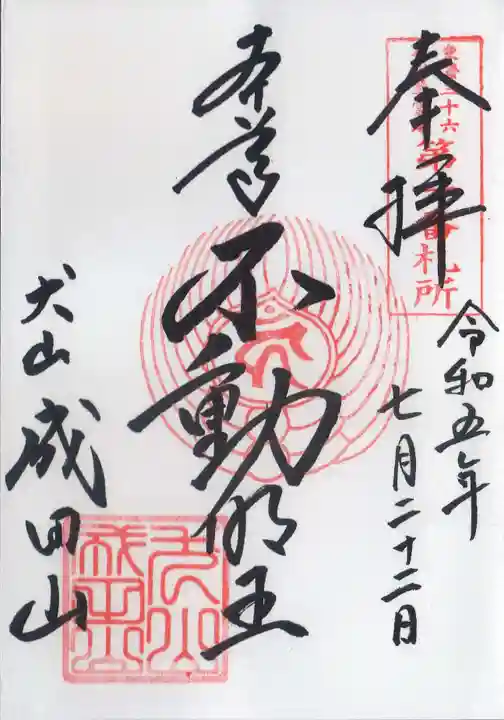 奉拝
東海三十六
第一番札所
令和五年
七月二十二日
本尊
不動明王
犬山
成田山